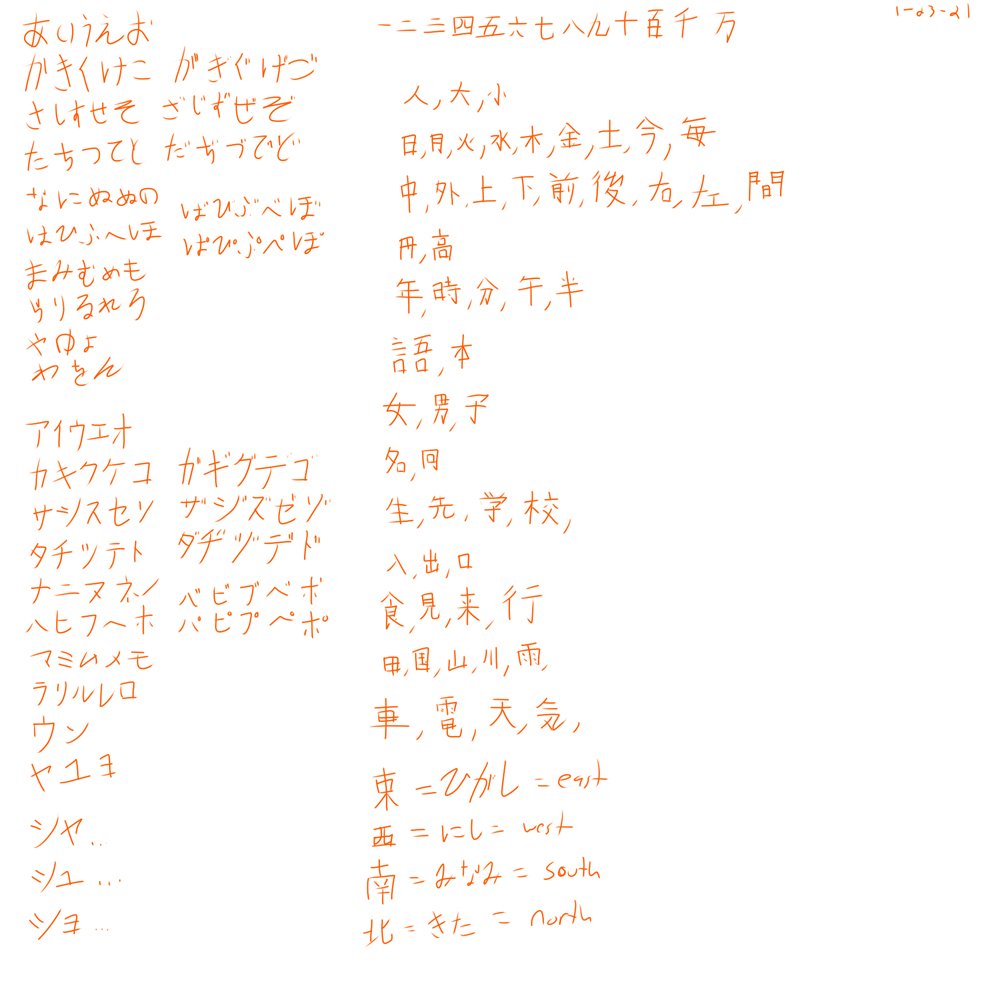 1-23-21
あいうえお
かきくけこ がぎぐげご
さしすせそ ざじずぜぞ
たちつてと だぢづでど
なにぬぬの
はひふへほ ばびぶべぼ
ぱぴぷぺぽ
まみむめも
らりるれろ
やゆよ
わをん
アイウエオ
カキクケコ ガギグテゴ
サシスセソ ザジズゼゾ
タチツテト ダヂヅデド
ナニヌネノ バビブベボ
ハヒフヘホ パピプペポ
マミムメモ
ラリルレロ
ウン
ヤユヨ
シヤ..
シユ...
ショ...
一二三四五六七八九十百千万
人,大,小
日,月,火,水,木,金,土,今,毎
中,外,上,下,前,後,右,左,間
円,高
年,時,分,午,半
語,本
女,男,子
名,何
生,先,学,校,
入,出,口
食,見,来,行
田,国,山,川,雨,
車,電,天,気,
東=ひがし=east
西=にし=west
南=みなみ=south
北=きた=north